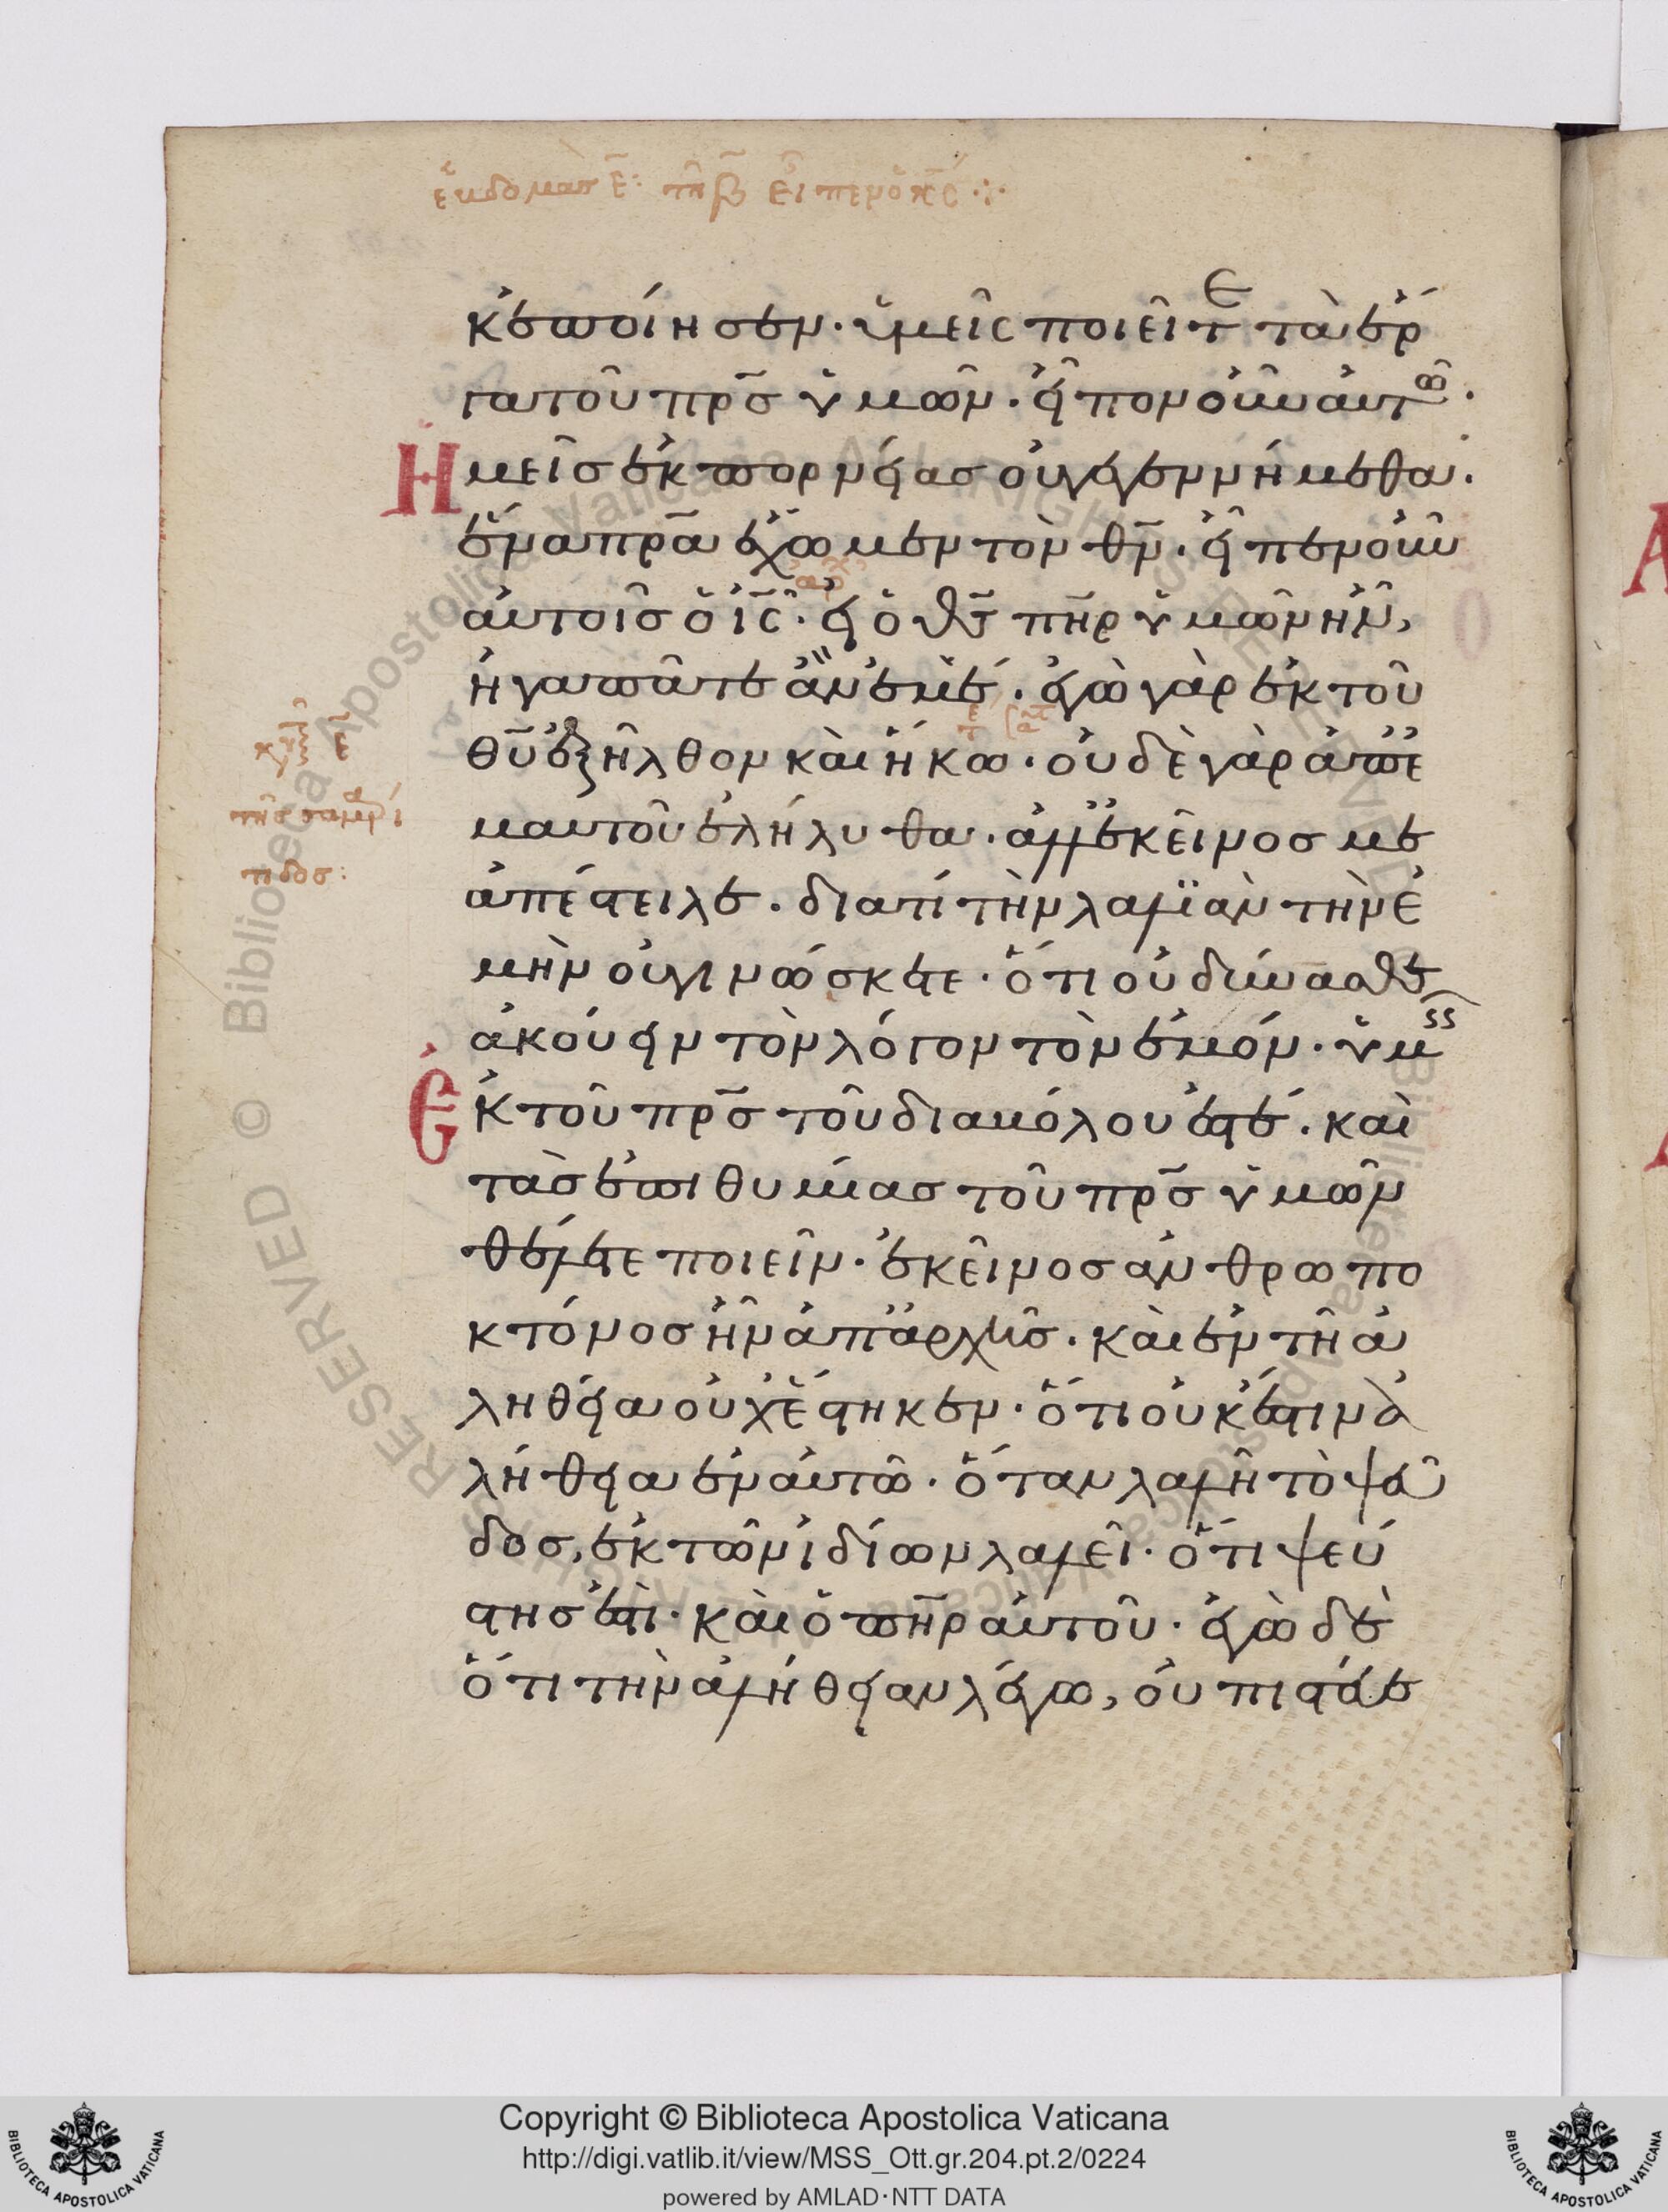 κ ἐποίησεν· ὑμεῖς ποιεῖτε τὰ ἔρ
γα τοῦ πρς ὑμῶν· εἶπον οὖν αὐτῶ·
Ἡμεῖς ἐκ πορνείας οὐ γεγεννήμεθα·
ἕνα πρα ἔχωμεν τὸν θν· εἶπεν οὖν
αὐτοῖς ὁ ις· εἰ ὁ θς πηρ ὑμῶν ἦν,
ἠγαπᾶτε ἂν ἐμέ· ἐγὼ γὰρ ἐκ τοῦ
θυ ἐξῆλθον καὶ ἥκω· οὐδὲ γὰρ ἀπ' ἐ
μαυτοῦ ἐλήλυθα· ἀλλ' ἐκεῖνος με
ἀπέστειλε· διατί τὴν λαλιὰν τὴν ἐ
μὴν οὐ γινώσκετε· ὅτι οὐ δύνασθε
ἀκούειν τὸν λόγον τὸν ἐμόν· ὑμεῖς
Ἐκ τοῦ πρς τοῦ διαβόλου ἐστέ· καὶ
τὰς ἐπιθυμίας τοῦ πρς ὑμῶν
θέλετε ποιεῖν· ἐκεῖνος ἀνθρωπο
κτόνος ἦν ἀπ' ἀρχῆς· καὶ ἐν τῆ ἀ
ληθεία οὐχ ἕστηκεν· ὅτι οὐκ ἔστιν ἀ
λήθεια ἐν αὐτῶ· ὅταν λαλῆ τὸ ψεῦ
δος, ἐκ τῶν ἰδίων λαλεῖ· ὅτι ψεύ
στης ἐστὶ· καὶ ὁ πηρ αὐτοῦ· ἐγὼ δὲ
ὅτι τὴν ἀλήθειαν λέγω, οὐ πιστεύε
Copyright © Biblioteca Apostolica Vaticana
http://digi.vatlib.it/view/MSS_Ott.gr.204.pt.2/0224
powered by AMLAD·NTT DATA
BIBLIOTECA APOSTOLICA VATICANA
BIBLIOTECA APOSTOLICA VATICANA